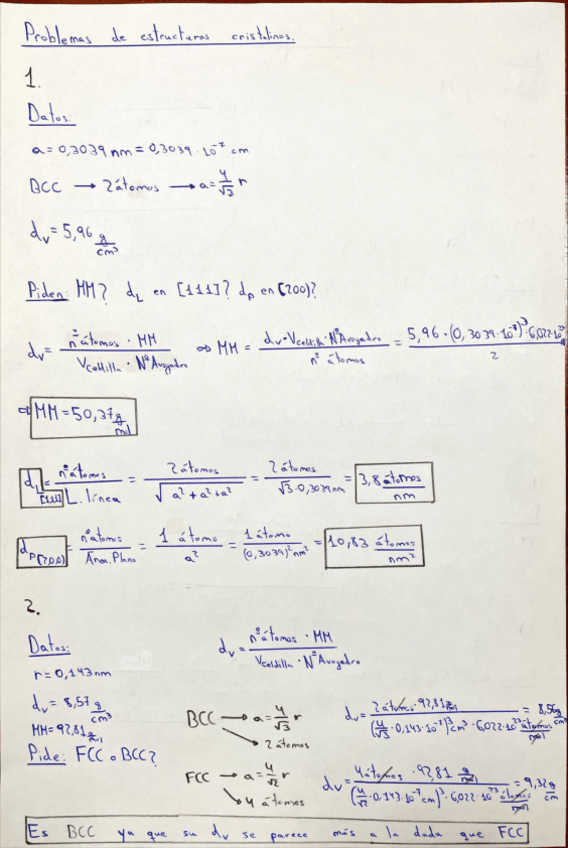 Problemas de estructuras cristalinas.
1.
Datos:
a = 0,3039 nm = 0,3039 · 10⁻⁷ cm
BCC → 2 átomos → a = 4/√3 r
dv = 5,96 g/cm³
Piden: MM? dL en [111]? dp en (200)?
dv = nº átomos · MM / Vceldilla · NºAvogadro ⇒ MM = dv · Vceldilla · NºAvogadro / nº átomos = 5,96 · (0,3039 · 10⁻⁷)³ · 6,022 · 10²³ / 2
⇒ MM = 50,37 g/mol
dL [111] = nº átomos / L. línea = 2 átomos / √(a² + a² + a²) = 2 átomos / √3 · 0,3039 nm = 3,8 átomos/nm
dp (200) = nº átomos / Área. Plano = 1 átomo / a² = 1 átomo / (0,3039)² nm² = 10,83 átomos/nm²
2.
Datos:
dv = nº átomos · MM / Vceldilla · NºAvogadro
r = 0,143 nm
dv = 8,57 g/cm³
MM = 92,81 g/mol
BCC → a = 4/√3 r
→ 2 átomos
dv = 2 átomos · 92,81 g/mol / (4/√3 · 0,143 · 10⁻⁷)³ cm³ · 6,022 · 10²³ átomos/mol = 8,56 g/cm³
Pide: FCC o BCC?
FCC → a = 4/√2 r
→ 4 átomos
dv = 4 átomos · 92,81 g/mol / (4/√2 · 0,143 · 10⁻⁷ cm)³ · 6,022 · 10²³ átomos/mol = 9,32 g/cm
Es BCC ya que su dv se parece más a la dada que FCC